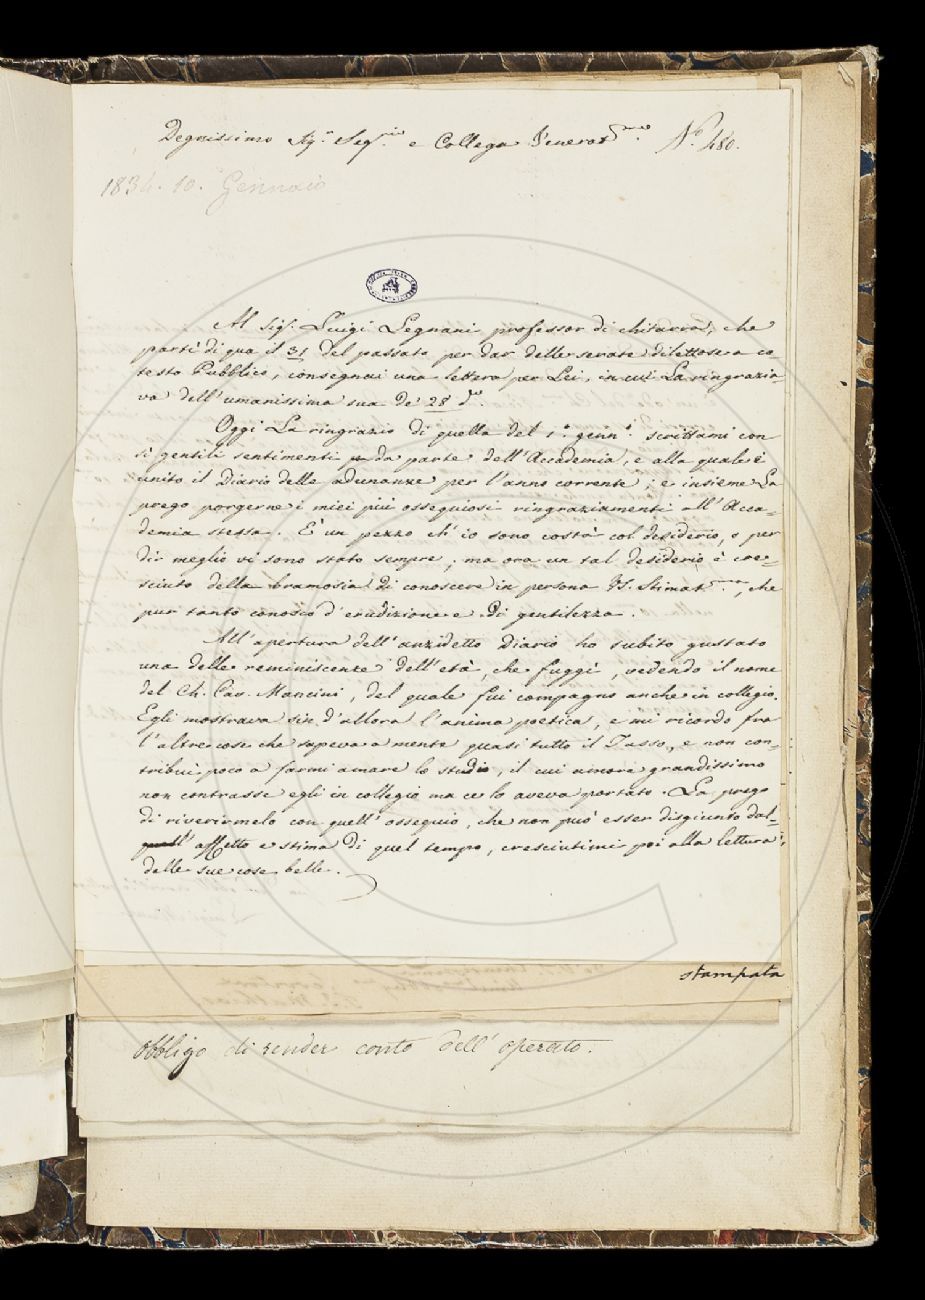 Degnissimo Sig.r Seg.rio e Collega Venerat.mo N.o 480.
1834. 10. Gennaio
Al Sig.r Luigi Legnani professor di chitarra, che
partì di qua il 31 del passato per dar delle serate dilettose a co-
testo Pubblico, consegnai una lettera per Lei, in cui La ringrazia-
va dell'umanissima sua de' 28 d.o.
Oggi La ringrazio di quella del 1.o genn.o scrittami con
sì gentili sentimenti da parte dell'Accademia, e alla quale è
unito il Diario delle adunanze per l'anno corrente; e insieme La
prego porgerne i miei più ossequiosi ringraziamenti all'Acca-
demia stessa. È un pezzo ch'io sono costà col desiderio, o per
dir meglio vi sono stato sempre; ma ora un tal desiderio è cre-
sciuto della bramosia di conoscere in persona V.S. Stimat.ma, che
pur tanto conosco d'erudizione e di gentilezza.
All'apertura dell'anzidetto Diario ho subito gustato
una delle reminiscenze dell'età, che fuggì, vedendo il nome
del Ch. Cav. Mancini, del quale fui compagno anche in collegio.
Egli mostrava sin d'allora l'anima poetica, e mi ricordo fra
l'altre cose che sapeva a mente quasi tutto il Tasso, e non con-
tribuì poco a farmi amare lo studio, il cui amore grandissimo
non contrasse egli in collegio ma ce lo aveva portato. La prego
di riverirmelo con quell'ossequio, che non può esser disgiunto dal-
l'affetto e stima di quel tempo, cresciutimi poi alla lettura
delle sue cose belle.
stampata
obbligo di render conto dell'operato.